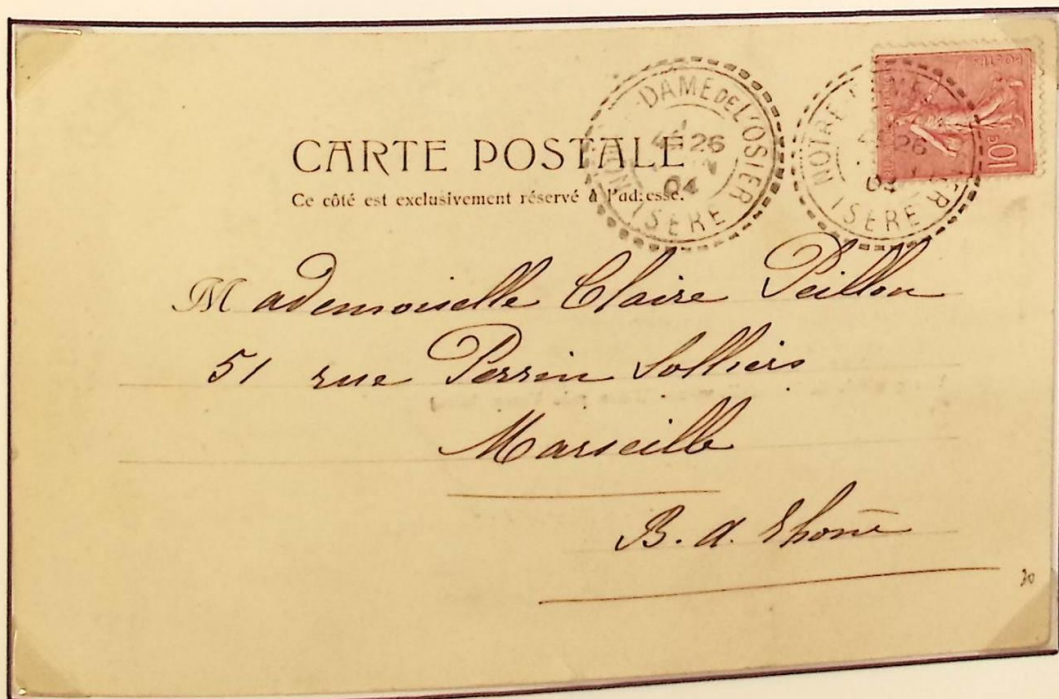 CARTE POSTALE
Ce côté est exclusivement réservé à l'adresse.
DAME DE L'OSIER
26
04
ISERE
NOTRE
26
ISERE
10c
Mademoiselle Claire Peillon
51 rue Perrin Solliers
Marseille
B. d. Rhône
30